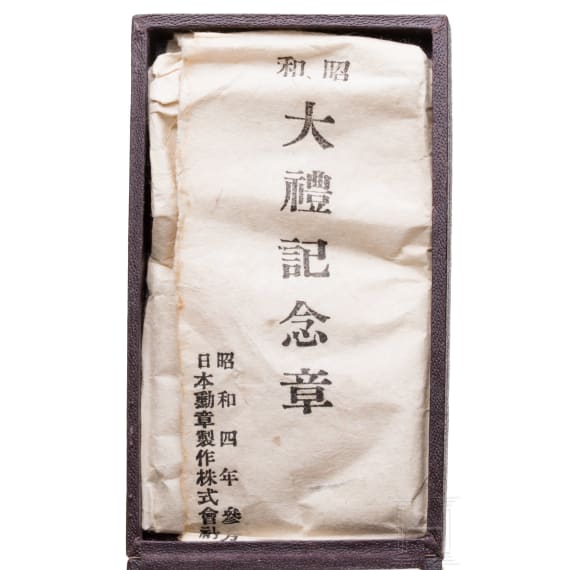 昭和
大禮記念章
昭和四年參月
日本勳章製作株式會社